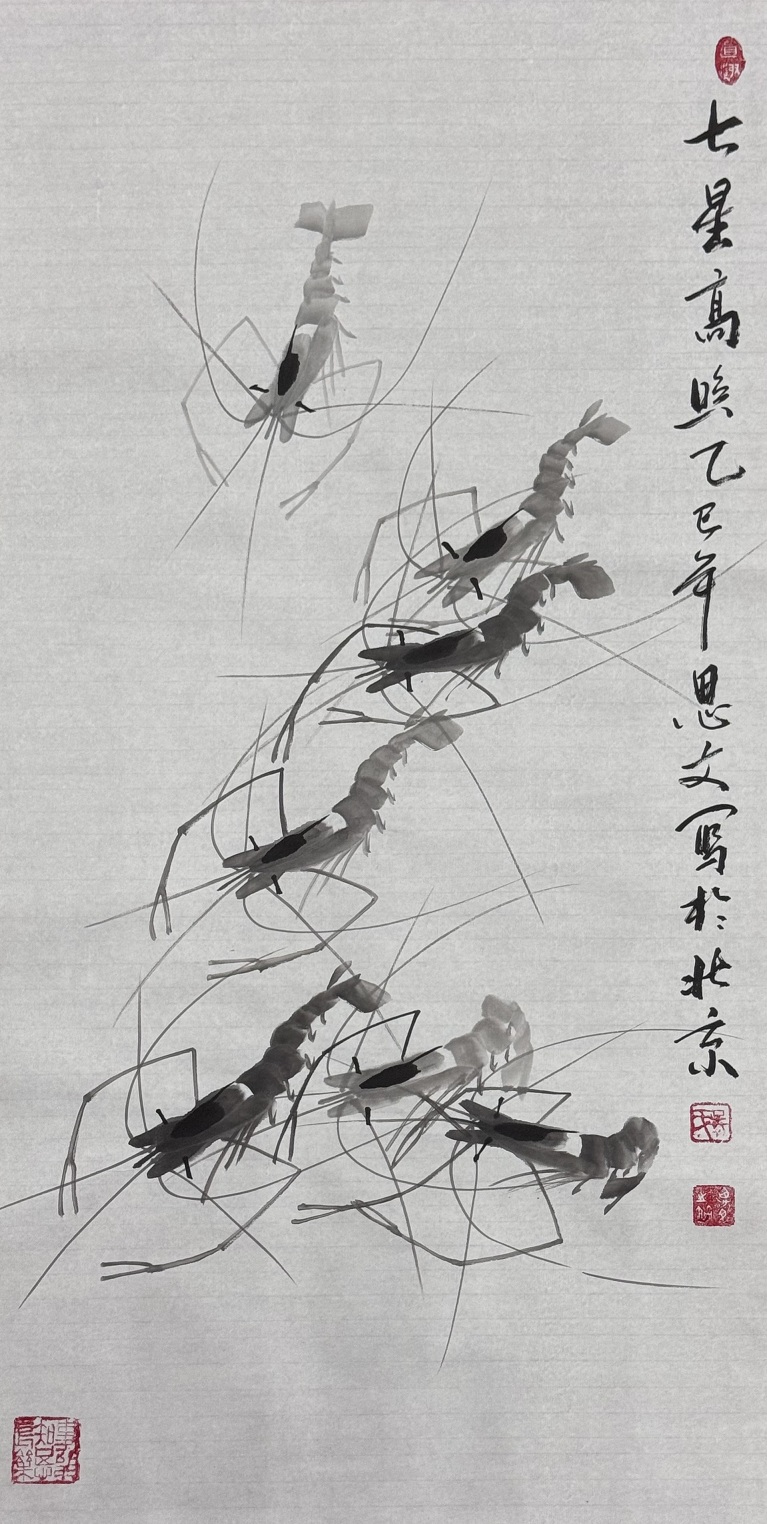 七星高照乙巳年思文写於北京